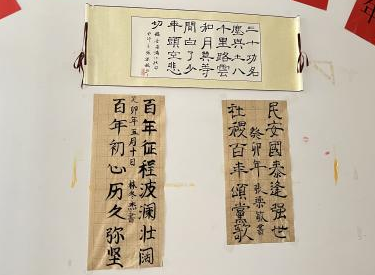 三十功名
塵與土八
千里路雲
和月莫等
閒白了少
年頭空悲
切
百年征程波澜壮阔
百年初心历久弥坚
癸卯年五月十日
民安國泰逢强世
社稷百年頌黨歌
癸卯年